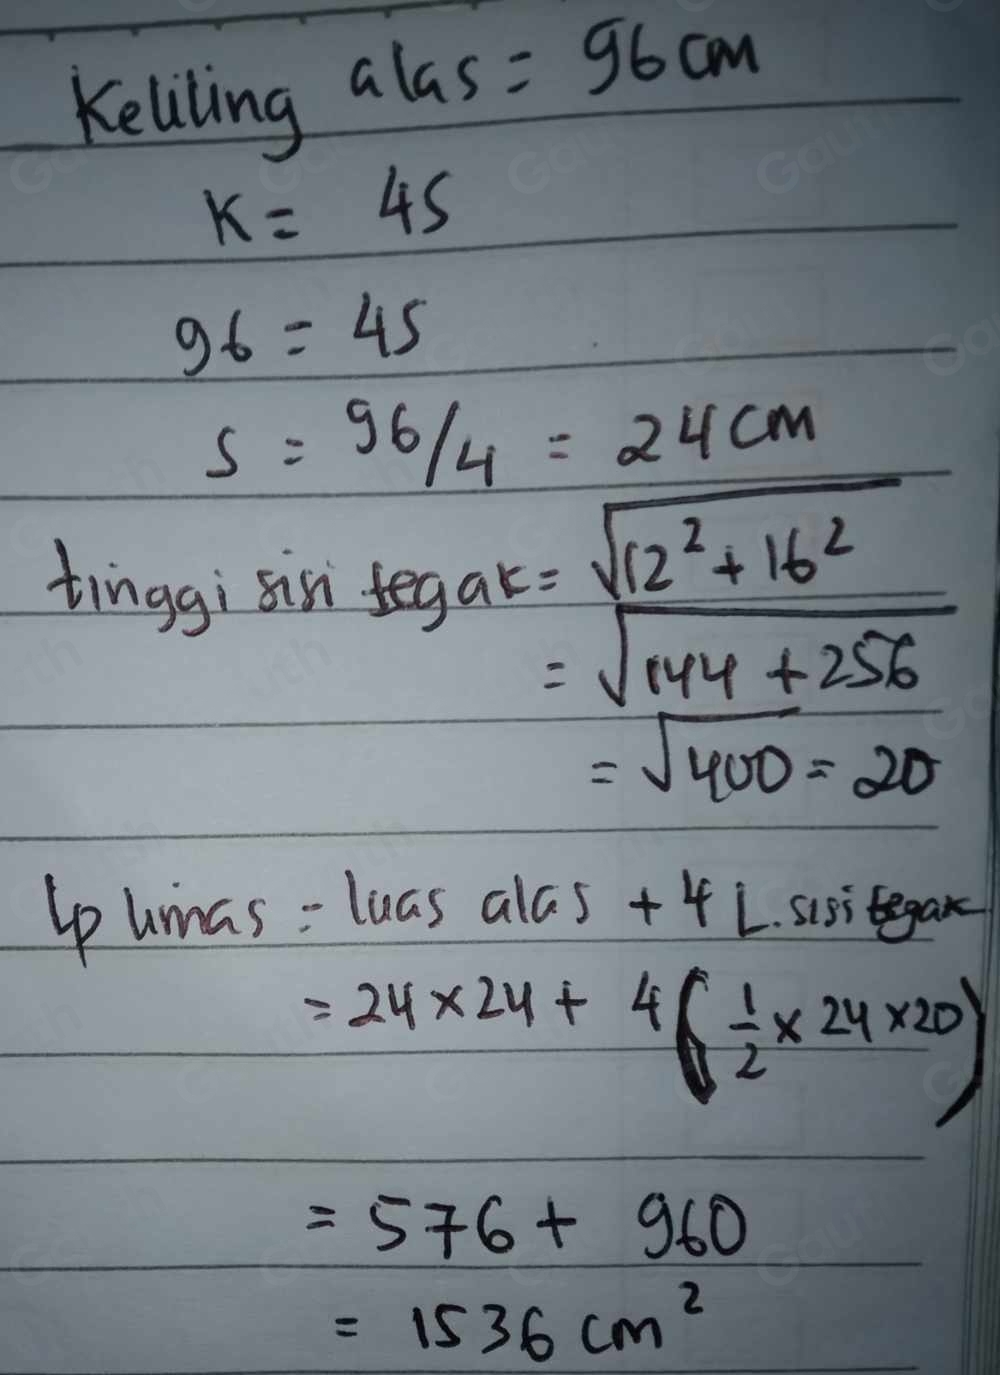 Keliling alas = 96 cm
K = 4s
96 = 4s
s = 96/4 = 24 cm
tinggi sisi tegak = √12² + 16²
= √144 + 256
= √400 = 20
Lp limas = luas alas + 4 L. sisi tegak
= 24 × 24 + 4 (1/2 × 24 × 20)
= 576 + 960
= 1536 cm²